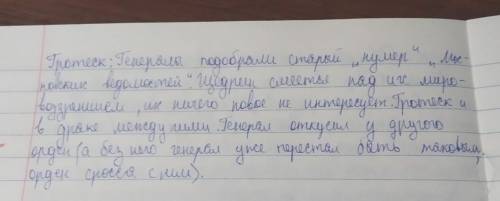 Гротеск: Генералы подобрали старый „нумер" „Мос-
ковских ведомостей". Щедрин смеется над их миро-
воззрением, их ничего новое не интересует. Гротеск и
в драке между ними. Генерал откусил у другого
орден (а без него генерал уже перестал быть таковым,
орден сросся с ним).